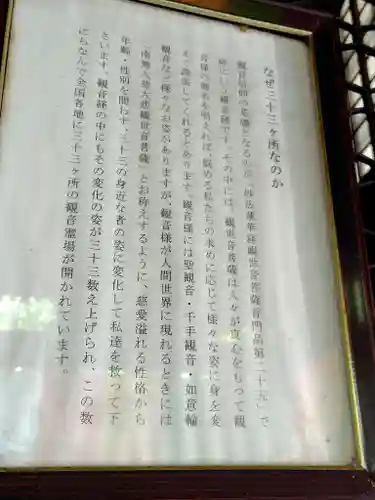 なぜ三十三ヶ所なのか
観音信仰の基盤となるのが「妙法蓮華経観世音菩薩普門品第二十五」さ
れている観音経です。その中には、観世音菩薩は人々が真心をもって観
音様の御名を唱えれば、悩める私たちの求めに応じて様々な姿に身を変
えて救済してくれるとあります。観音様には聖観音・千手観音・如意輪
観音など様々なお姿がありますが、観音様が人間世界に現れるときには
「南無大慈大悲観世音菩薩」とお称えするように、慈愛溢れる性格から
年齢・性別を問わず、三十三の身近な者の姿に変化して私達を救って下
さいます。観音経の中にもその変化の姿が三十三数え上げられ、この数
にちなんで全国各地に三十三ヶ所の観音霊場が開かれています。